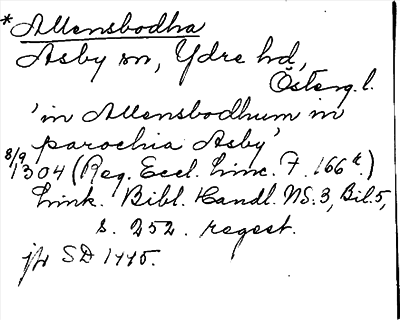 *Allensbodha
Asby sn, Ydre hd,
Österg.l.
'in Allensbodhum in
parochia Asby'
8/9 1304 (Reg. Eccl. Linc. F. 166r.)
Link. Bibl. Handl. NS. 3, Bil. 5,
s. 252. regest.
jfr SD 1445.